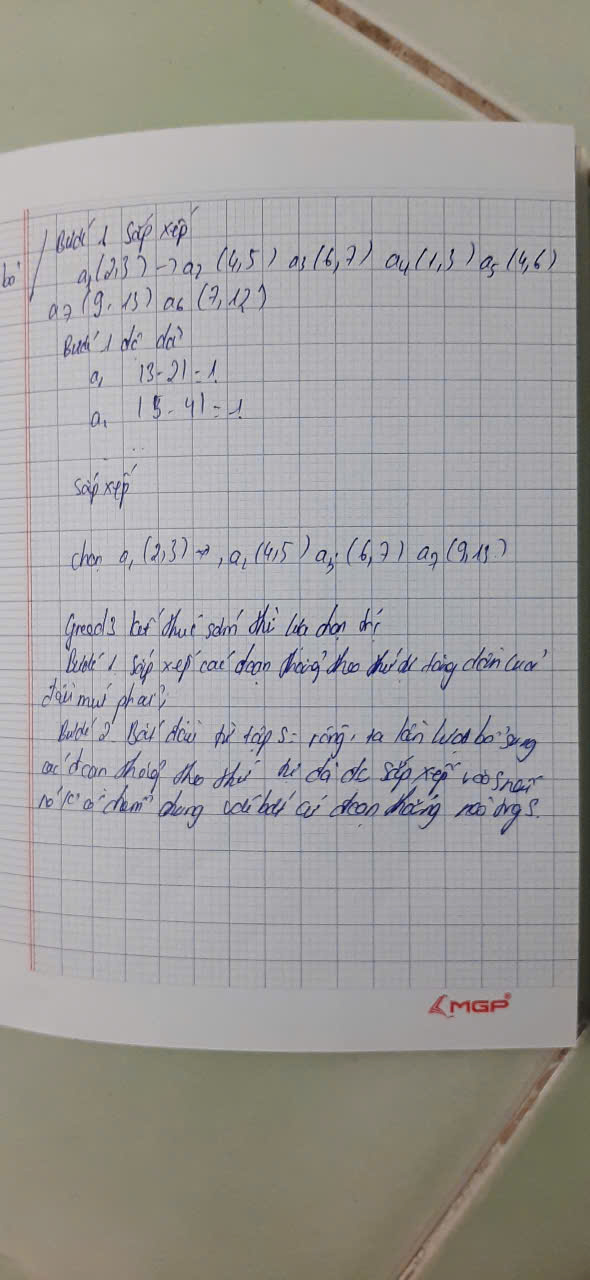 bỏ
Bước 1 Sắp xếp
a₁(2,3) → a₂ (4,5) a₃(6,7) a₄(1,3) a₅(4,6)
a₇(9,13) a₆(7,12)
Bước 1 độ dài
a₁ |3-2| = 1
a₂ |5-4| = 1
...
Sắp xếp
chọn a₁(2,3) →, a₂(4,5) a₃(6,7) a₇(9,13)
Greed3 kết thúc sớm thì lựa chọn
Bước 1. Sắp xếp các đoạn thẳng theo thứ tự tăng dần của
đầu mút phải;
Bước 2 Bắt đầu từ tập S = rỗng, ta lần lượt bổ sung
các đoạn thẳng theo thứ tự đã đc sắp xếp vào S nếu
nó có chung với bất cứ đoạn thẳng nào S.
MGP